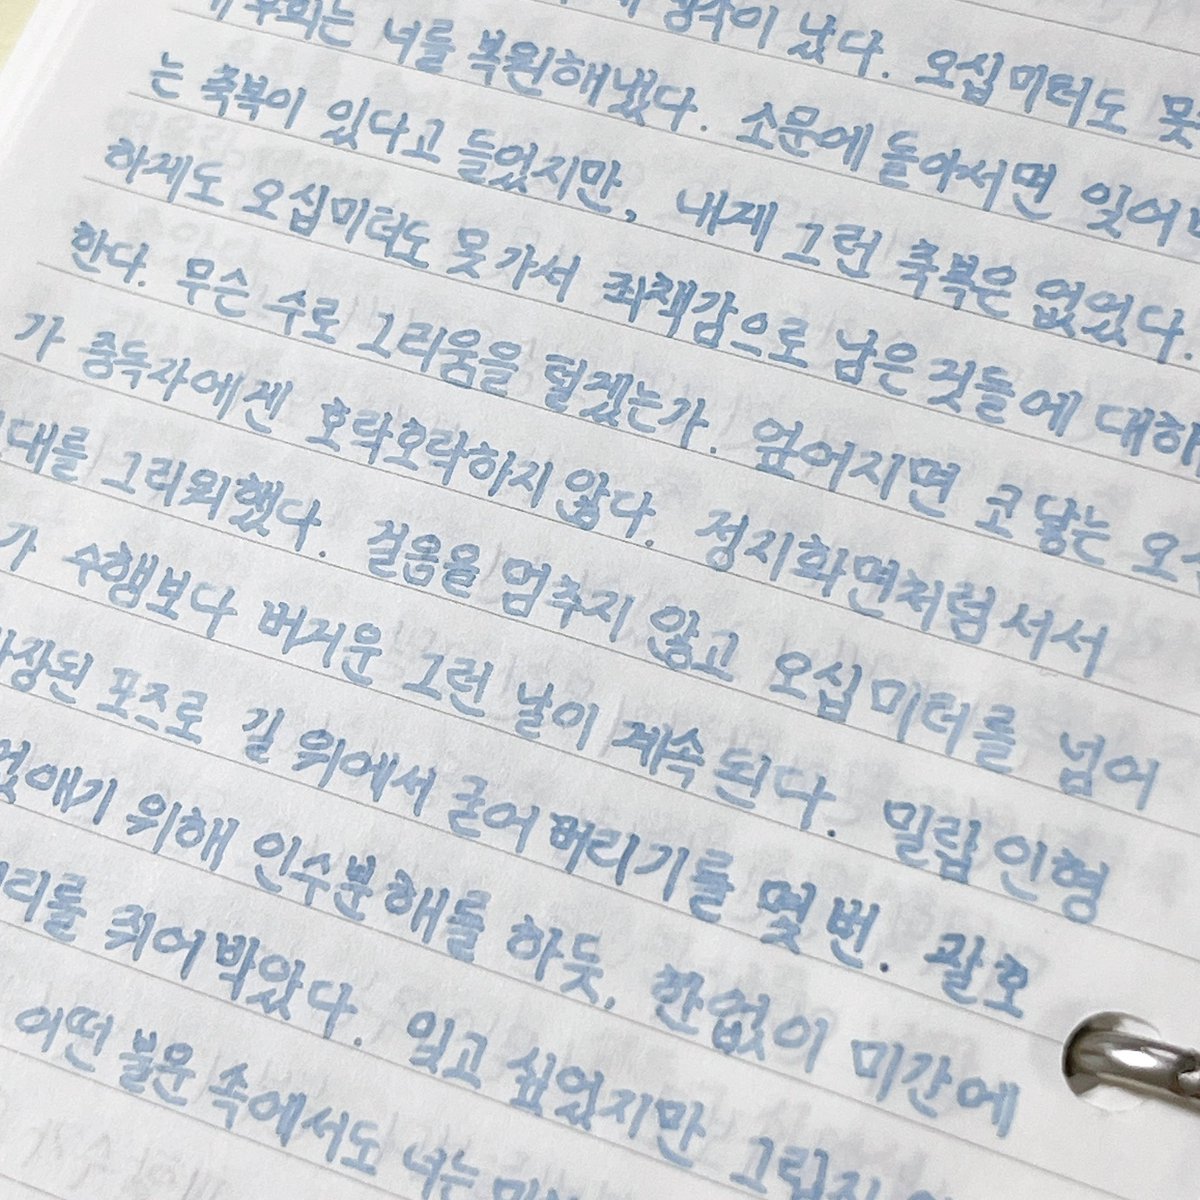 이 났다. 오십미터도 못
후회는 너를 복원해냈다. 소문에 돌아서면 잊어
는 축복이 있다고 들었지만, 내게 그런 축복은 없었다.
하게도 오십미터도 못가서 죄책감으로 남은 것들에 대해
한다. 무슨 수로 그리움을 털겠는가. 엎어지면 코닿는 오
가 중독자에겐 호락호락하지 않다. 정지화면처럼 서서
대를 그리워했다. 걸음을 멈추지 않고 오십미터를 넘어
가 수행보다 버거운 그런 날이 계속된다. 밀랍 인형
장된 포즈로 길 위에서 굳어 버리기를 몇 번. 괄호
없애기 위해 인수분해를 하듯, 한없이 미간에
리를 쥐어박았다. 잊고 싶었지만 그립지
어떤 불운 속에서도 너는